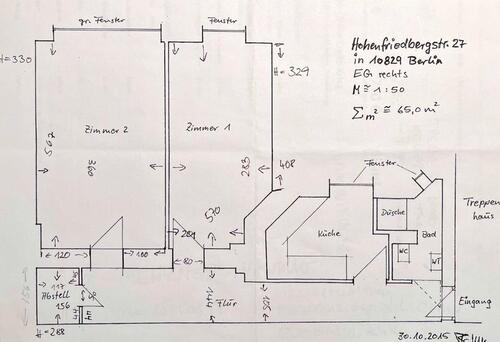 gr. Fenster
Fenster
H=330
H=329
Hohenfriedbergstr. 27
in 10829 Berlin
EG rechts
M ≅ 1:50
Σm² ≅ 65,0 m²
Zimmer 2
Zimmer 1
507
360
283
408
Fenster
530
281
Dusche
Küche
Bad
WC
WT
Treppen
haus
120
100
80
117
Abstell
156
Flur
144
Eingang
H=288
30.10.2015